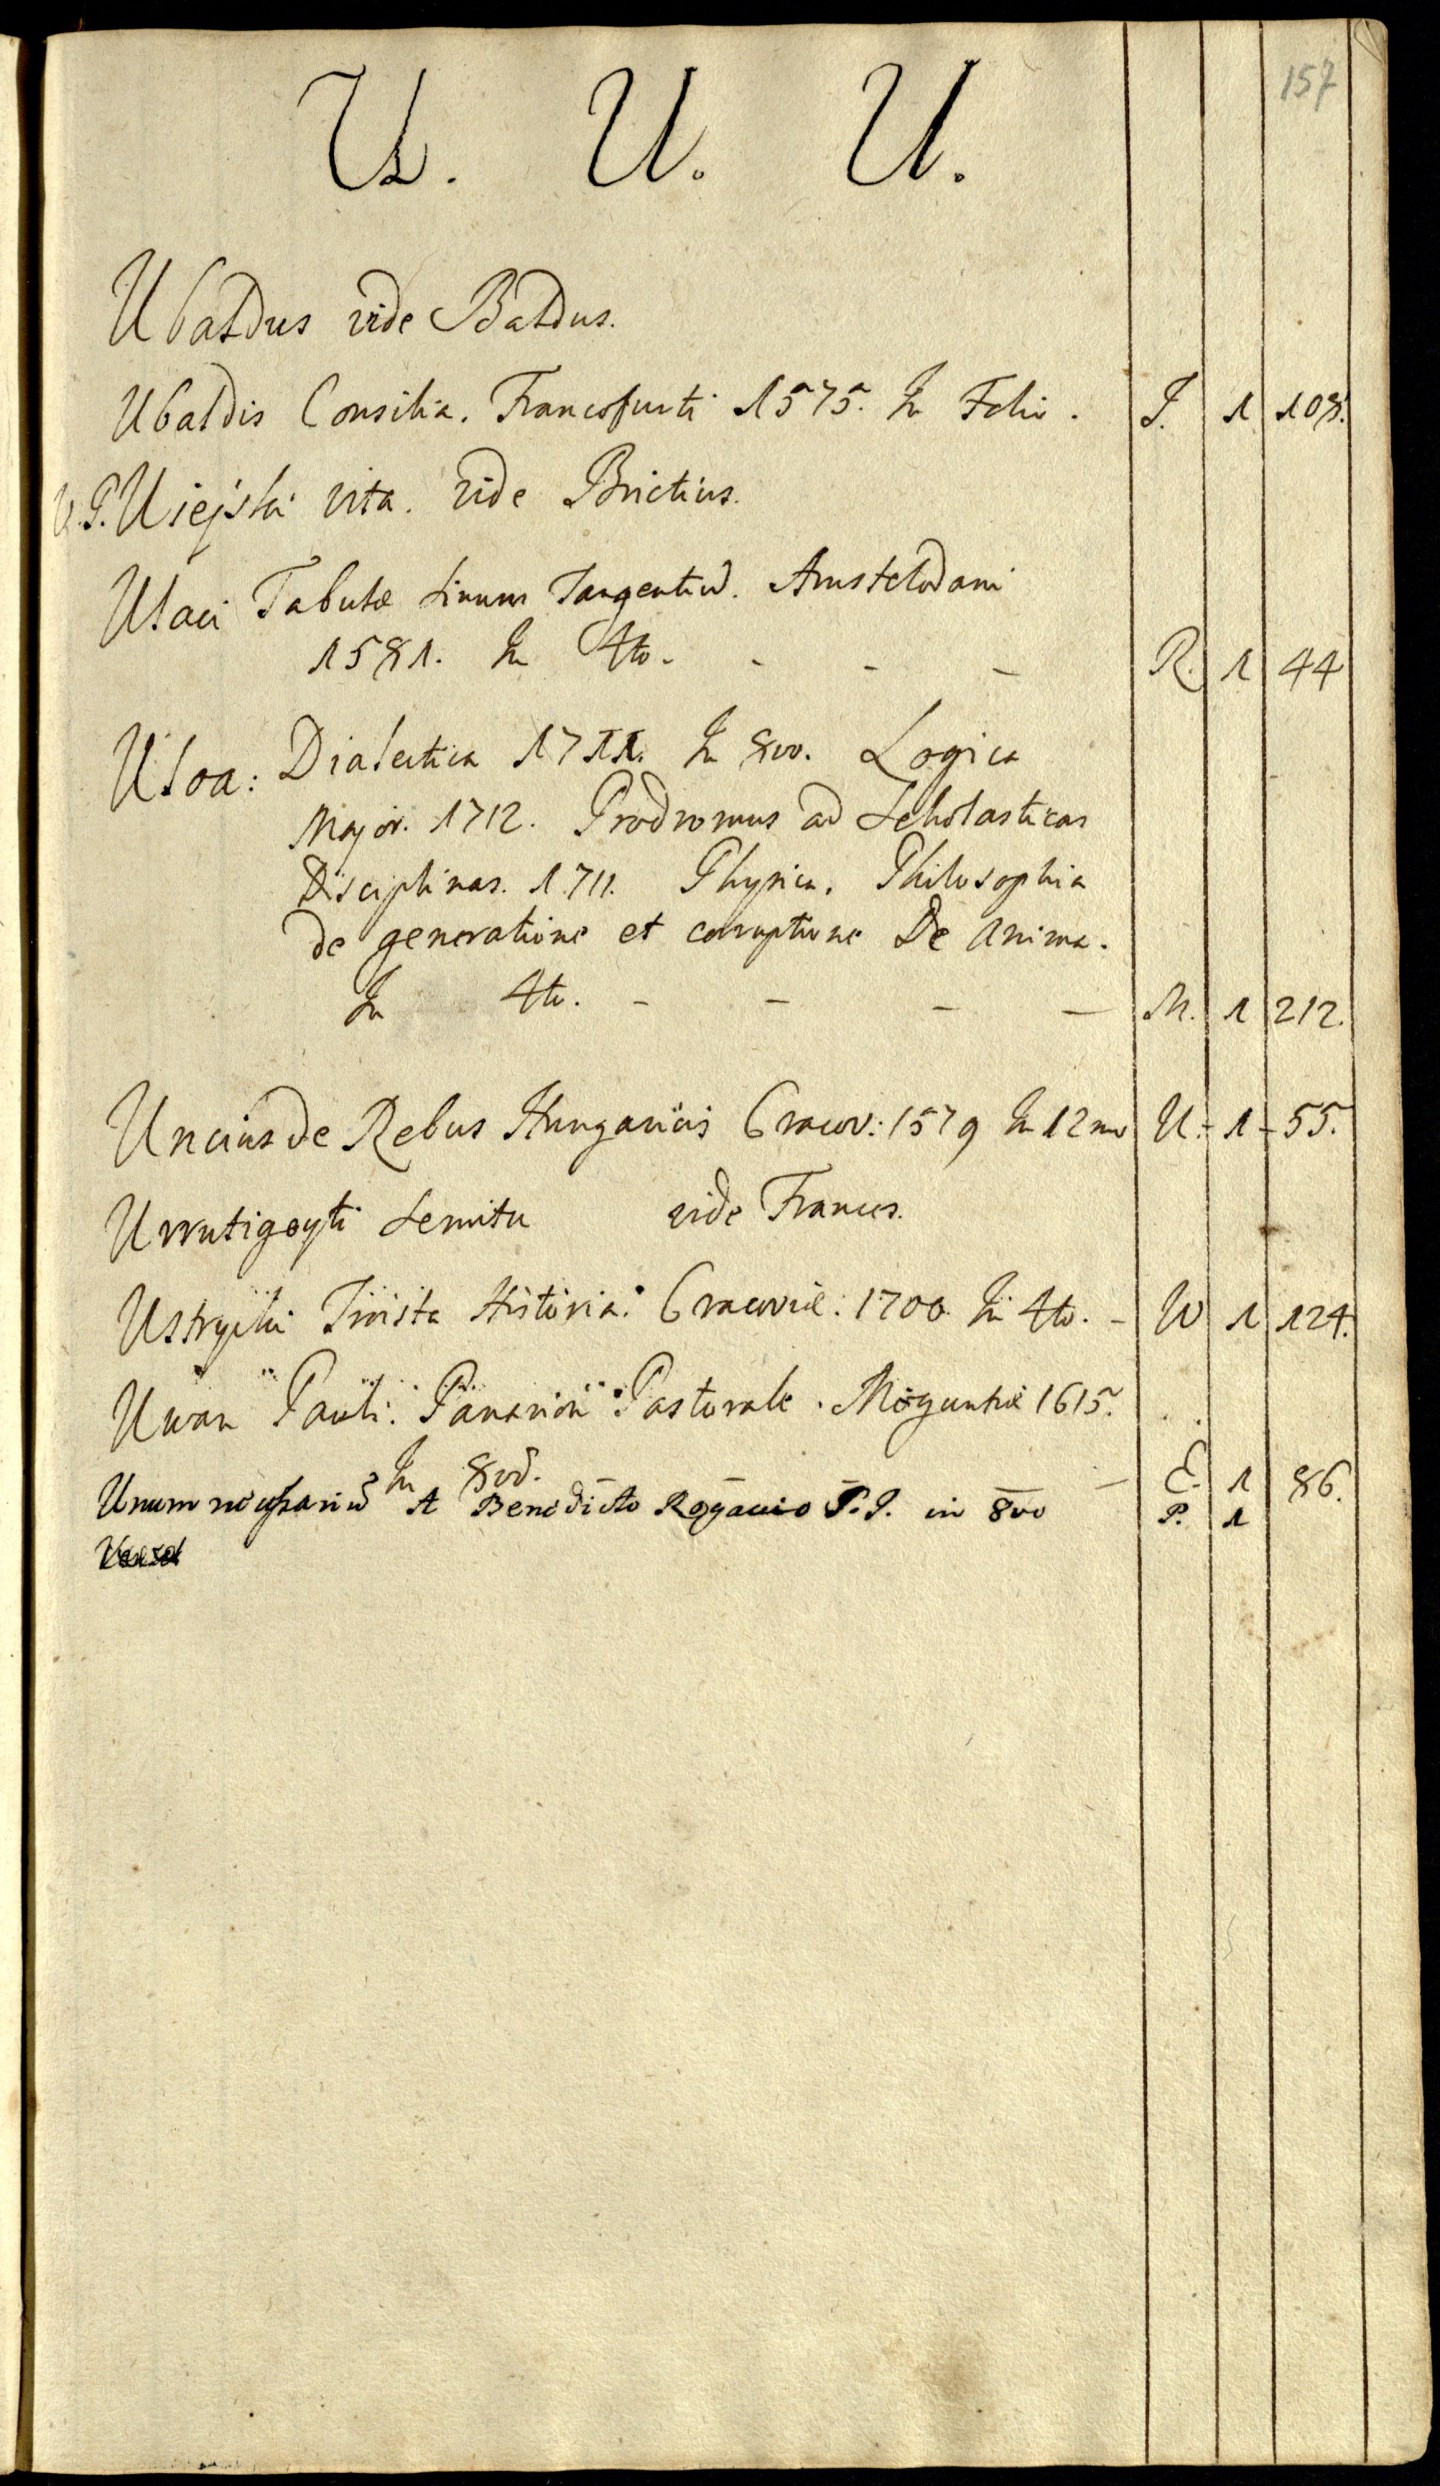 157
U. U. U.
Ubaldus vide Baldus.
Ubaldis Consilia. Francofurti 1575. In Folio. J. 1 108.
V. P. Ujejski vita. vide Brictius.
Ulaci Tabulæ Sinuum Tangentiū. Amstelodami
1581. In 4to. - - - R. 1 44
Uloa: Dialectica 1711. In 8vo. Logica
Major. 1712. Prodromus ad Scholasticas
Disciplinas. 1711. Physica. Philosophia
de generatione et corruptione De Anima.
In 4to. - - - - M. 1 212.
Uncius de Rebus Hungaricis Cracov: 1579 In 12mo U. - 1 - 55.
Urrutigoyti Semita vide Frances.
Ustrycki Troista Historia. Cracoviæ: 1700. In 4to. - W 1 124.
Uvan Pauli. Panarion Pastorale. Moguntiæ 1615.
In 8vo. - - - E. 1 86.
Unum necessariū A Benedicto Rogacio P. J. in 8vo P. 1